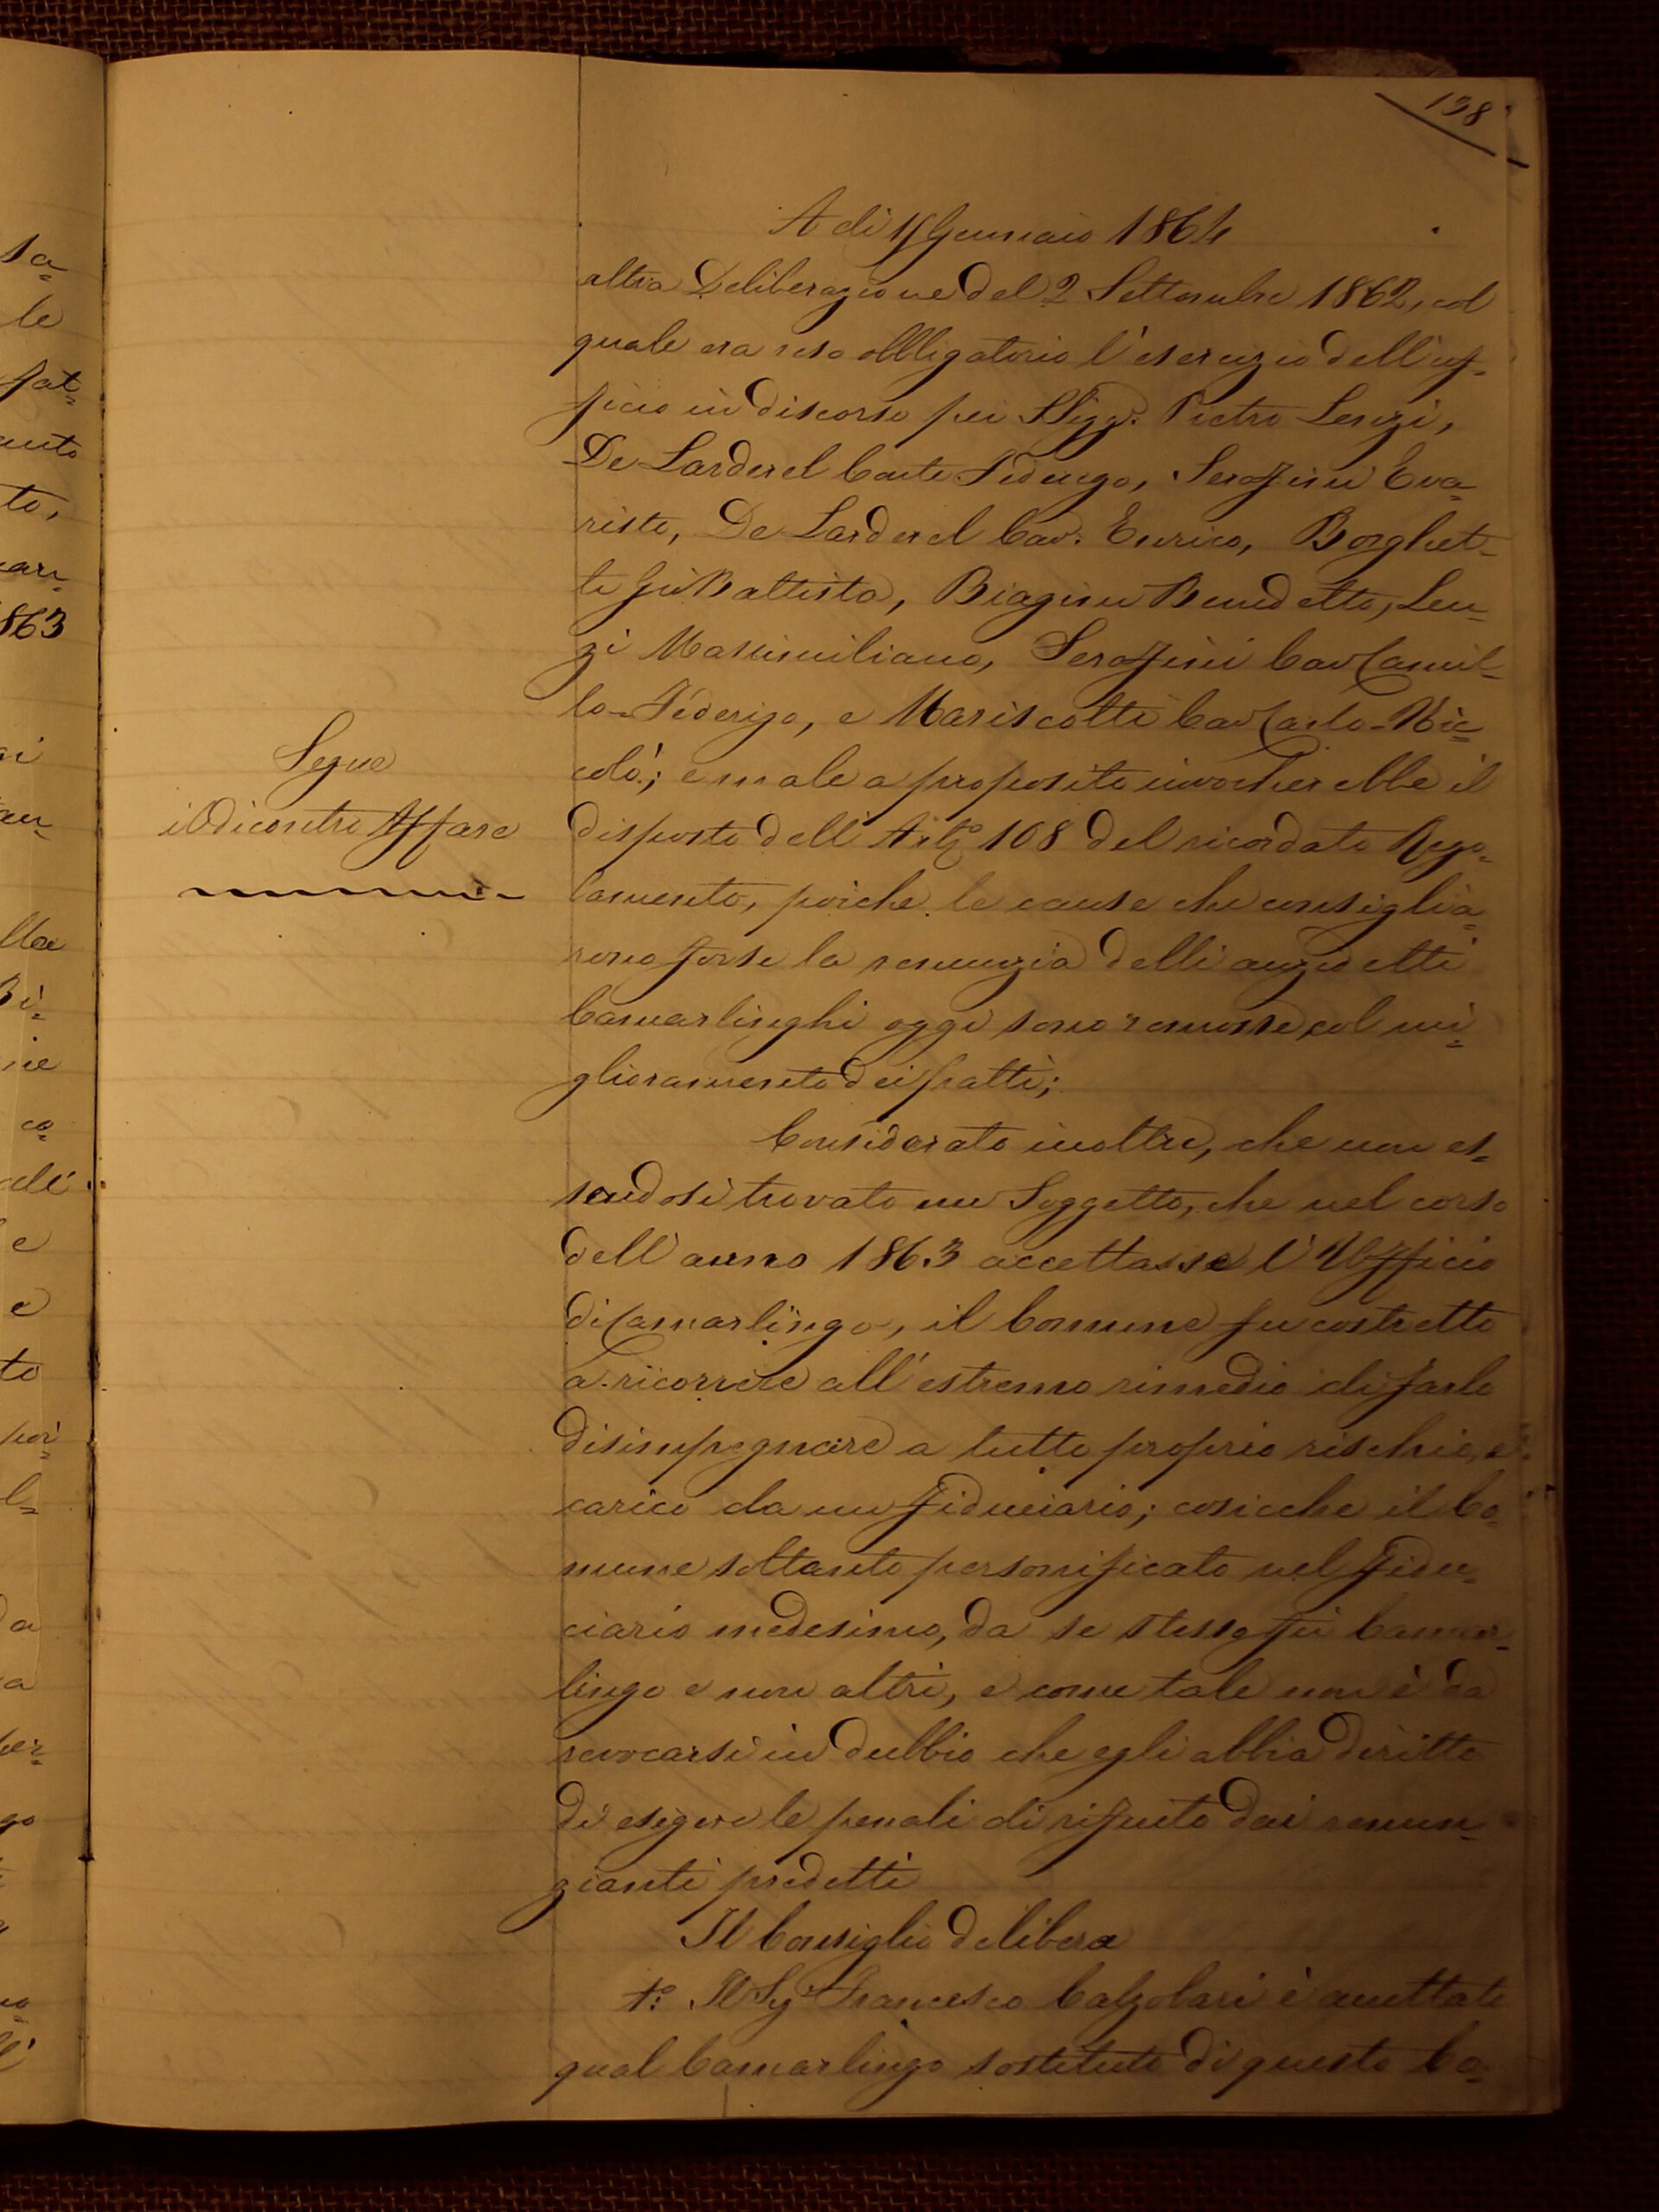 138
A dì Gennaio 1864
altra Deliberazione del 2 Settembre 1862, col
quale era reso obbligatorio l'esercizio dell'uf-
ficio in discorso pei SSigg.i Pietro Lenzi,
De Larderel Conte Federigo, Serafini Eva-
risto, De Larderel Cav. Enrico, Borghet-
ti Gio Battista, Biagini Benedetto, Len-
zi Massimiliano, Serafini Cav Camil-
lo-Federigo, e Mariscotti Cav Carlo-Nic-
colò; e male a proposito invocherebbe il
disposto dell'Artº 108 del ricordato Rego-
lamento, poiche le cause che consiglia-
rono forse la renunzia delli anzidetti
Camarlinghi oggi sono remosse col mi-
glioramento dei patti;
Considerato inoltre, che non es-
sendosi trovato un Soggetto, che nel corso
dell'anno 1863 accettasse l'Ufficio
di Camarlingo, il Comune fu costretto
a ricorrere all'estremo rimedio di farlo
disimpegnare a tutto proprio rischio, e
carico da un fiduciario; cosicche il Co-
mune soltanto personificato nel fidu-
ciario medesimo, da se stesso fu Camar-
lingo e non altri, e come tale non è da
revocarsi in dubbio che egli abbia diritto
di esigere le penali di rifiuto dai renun-
zianti predetti
Il Consiglio delibera
1º: Il Sigr Francesco Calzolari è accettato
qual Camarlingo sostituto di questo Co-
Segue
il dicontro Affare
sa-
le
fat-
to,
1863
lla
ne
co-
e
e
to
a
a
go